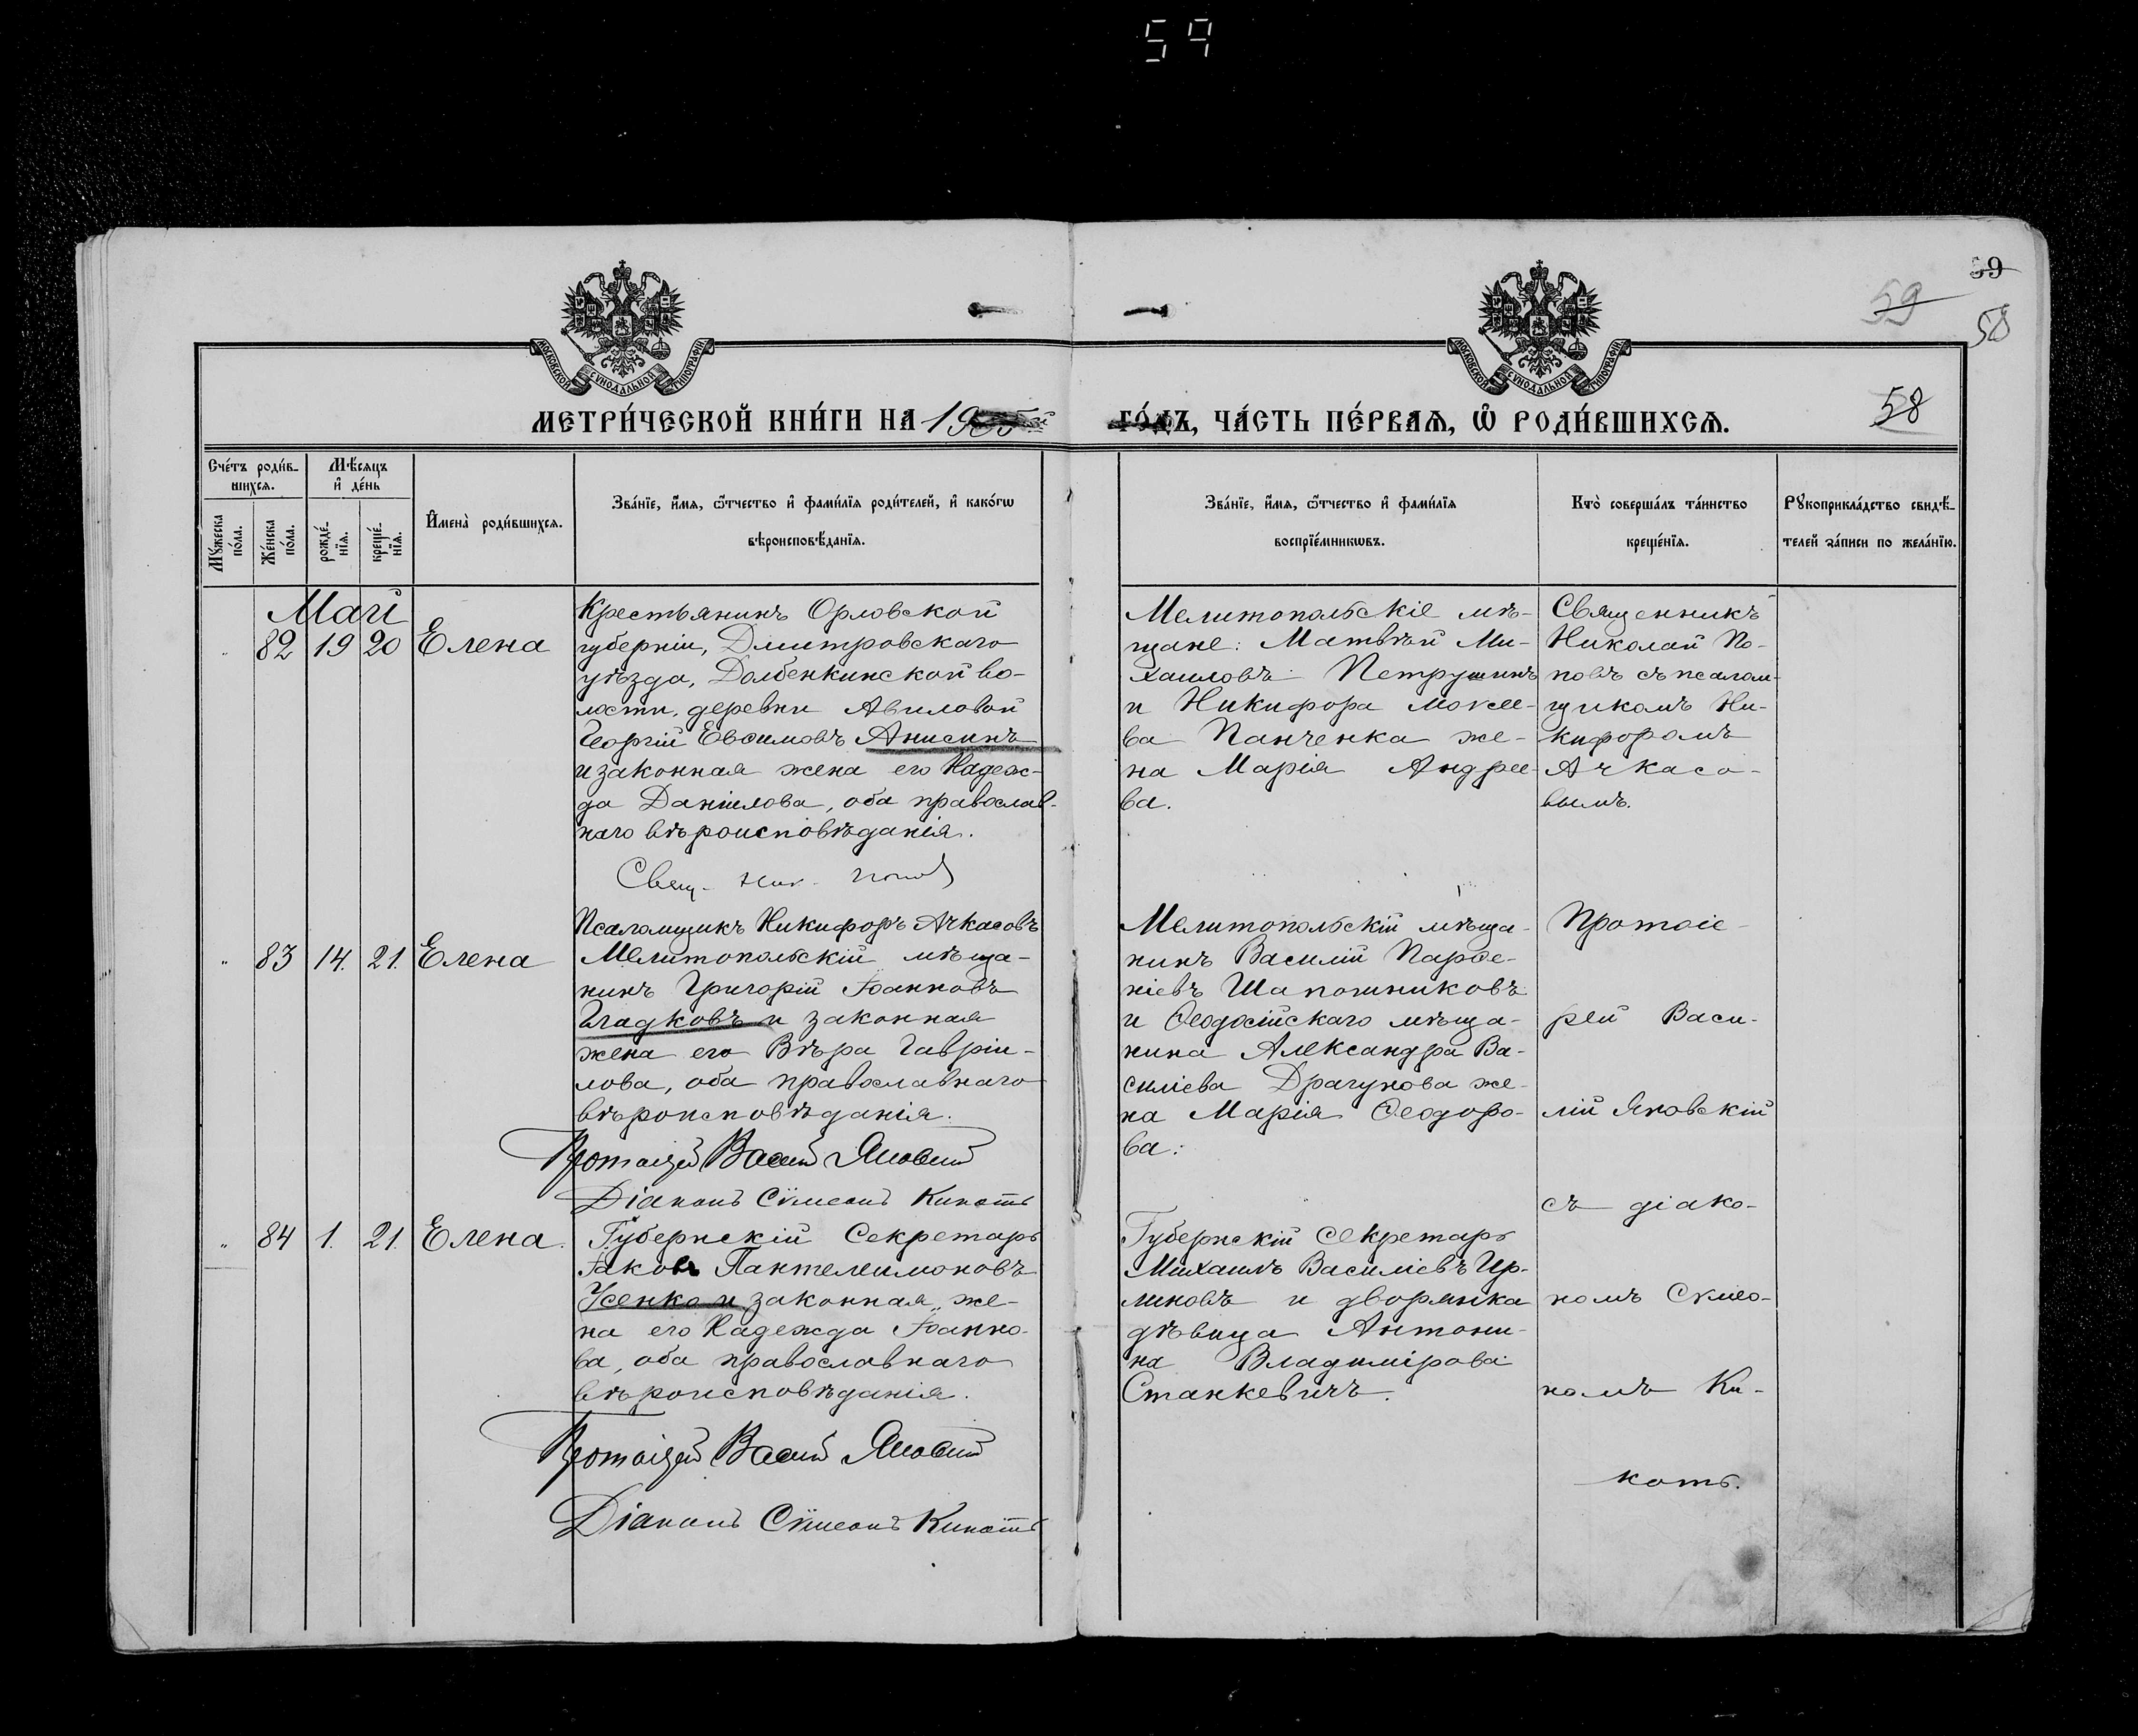 59
59
59
58
58
МОСКОВСКОЙ СѴНОДАЛЬНОЙ ТИПОГРАФІИ
МОСКОВСКОЙ СѴНОДАЛЬНОЙ ТИПОГРАФІИ
МЕТРИ́ЧЕСКОЙ КНИ́ГИ НА 19
ГО́ДЪ, ЧА́СТЬ ПЕ́РВАѦ, Ѡ҆ РОДИ́ВШИХСѦ.
Сче́тъ роди́в-
шихсѧ.
Мѣ́сяцъ
и҆ де́нь
Мꙋ́жеска
по́ла.
Же́нска
по́ла.
рожде́-
нїѧ.
креще́-
нїѧ.
И҆мена̀ роди́вшихсѧ.
Зва́нїе, и҆́мѧ, ѻ҆́тчество и҆ фами́лїѧ роди́телей, и҆ како́гѡ
вѣроисповѣ́данїѧ.
Зва́нїе, и҆́мѧ, ѻ҆́тчество и҆ фами́лїѧ
воспрїе́мникѡвъ.
Кто̀ соверша́лъ та́инство
креще́нїѧ.
Рꙋкоприкла́дство свидѣ́-
телей за́писи по жела́нїю.
Май
" 82 19 20 Елена
Крестьянинъ Орловской
губерніи, Дмитровскаго
уѣзда, Долбенкинской во-
лости, деревни Авиловой
Георгій Евсимовъ Анисинъ
и законная жена его Надеж-
да Даніилова, оба православ-
наго вѣроисповѣданія.
Свящ. Ник. Попов
Псаломщикъ Никифоръ Ачкасовъ
Мелитопольскіе мѣ-
щане: Матвѣй Ми-
хаиловъ Петрушинъ
и Никифора Мокее-
ва Панченка же-
на Марія Андрее-
ва.
Священникъ
Николай По-
повъ съ псалом-
щикомъ Ни-
кифоромъ
Ачкасо-
вымъ.
" 83 14. 21. Елена
Мелитопольскій мѣща-
нинъ Григорій Іоанновъ
Гладковъ и законная
жена его Вѣра Гавріи-
лова, оба православнаго
вѣроисповѣданія.
Протоіерей Василій Яновскій
Діаконъ Сѵмеонъ Кикоть
Мелитопольскій мѣща-
нинъ Василій Парѳе-
ніевъ Шапошниковъ
и Ѳеодосійскаго мѣща-
нина Александра Ва-
силіева Драгунова же-
на Марія Ѳеодоро-
ва.
Протоіе-
рей Васи-
лій Яновскій
съ діако-
номъ Сѵмео-
номъ Ки-
коть.
" 84 1. 21. Елена.
Губернскій Секретарь
Іаковъ Пантелеимоновъ
Усенко и законная же-
на его Надежда Іоанно-
ва, оба православнаго
вѣроисповѣданія.
Протоіерей Василій Яновскій
Діаконъ Сѵмеонъ Кикоть
Губернскій Секретарь
Михаилъ Василіевъ
и дворянка
дѣвица Антони-
на Владимірова
Станкевичъ.